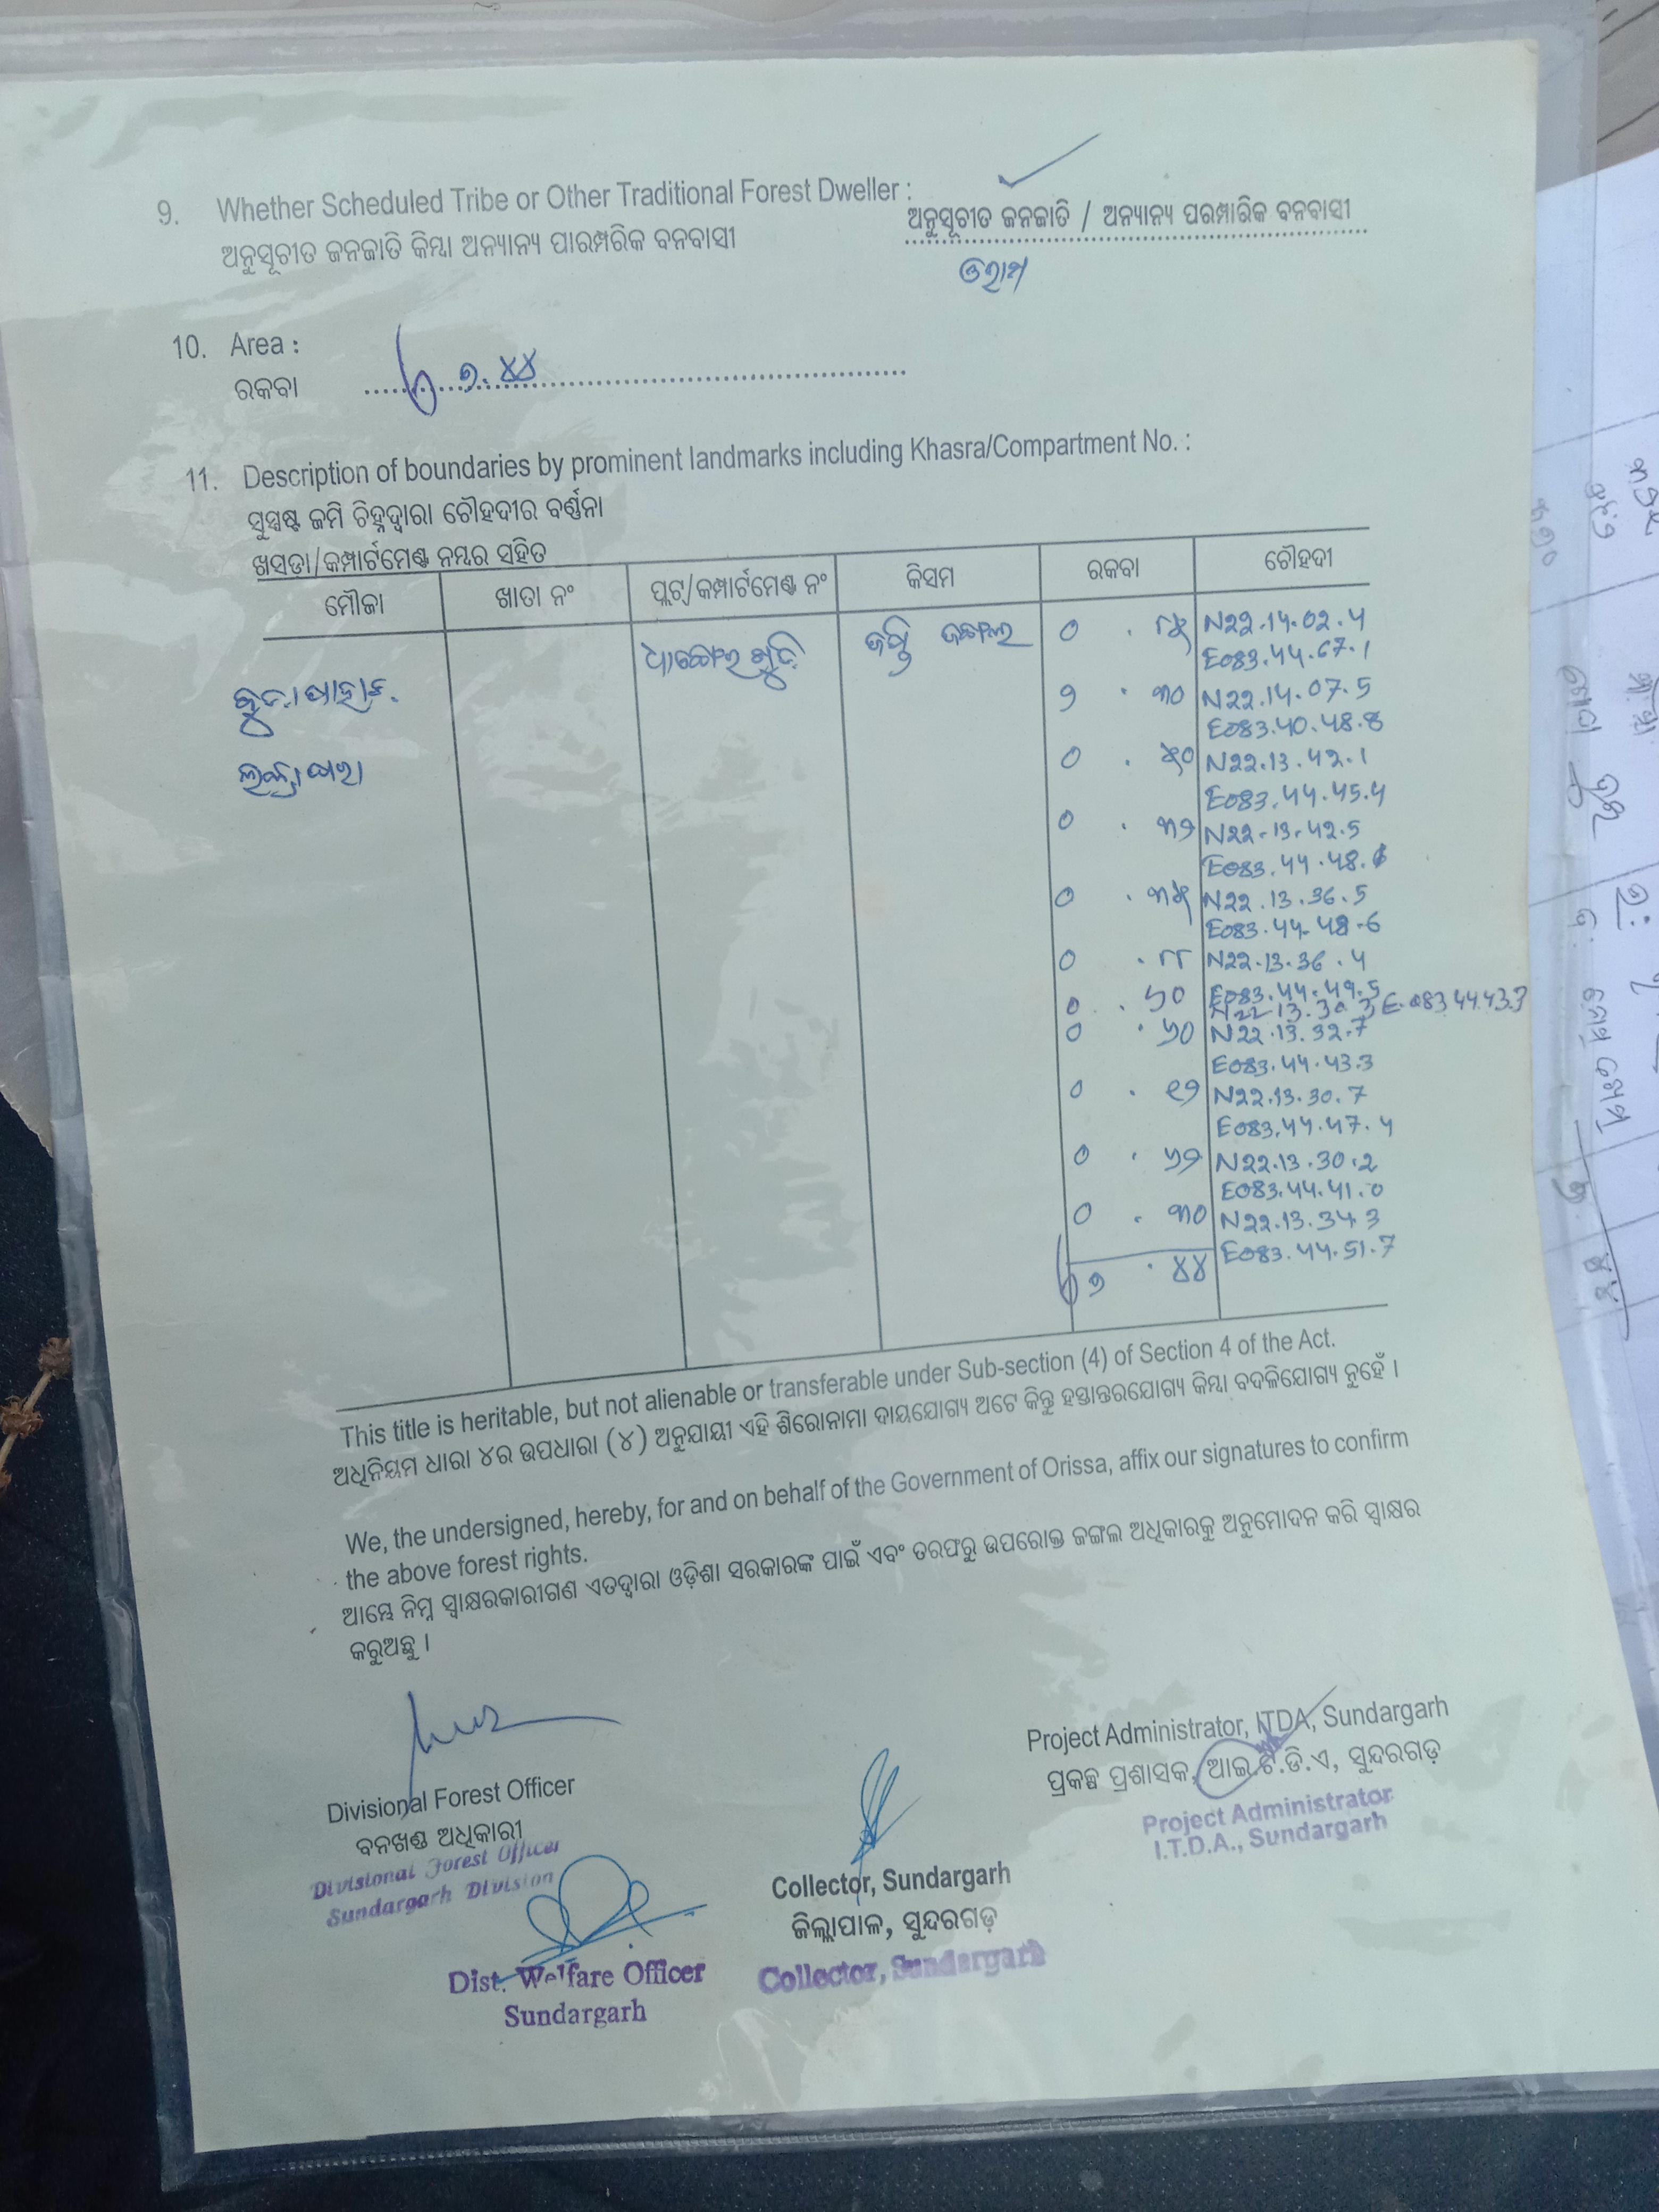 9. Whether Scheduled Tribe or Other Traditional Forest Dweller :
ଅନୁସୂଚୀତ ଜନଜାତି କିମ୍ବା ଅନ୍ୟାନ୍ୟ ପାରମ୍ପରିକ ବନବାସୀ
ଅନୁସୂଚୀତ ଜନଜାତି / ଅନ୍ୟାନ୍ୟ ପରମ୍ପାରିକ ବନବାସୀ
ଓରାମ
10. Area :
ରକବା ୭.୪୪
11. Description of boundaries by prominent landmarks including Khasra/Compartment No. :
ସୁସ୍ପଷ୍ଟ ଜମି ଚିହ୍ନଦ୍ୱାରା ଚୌହଦୀର ବର୍ଣ୍ଣନା
ଖସଡ଼ା/କମ୍ପାର୍ଟମେଣ୍ଟ ନମ୍ବର ସହିତ
ମୌଜା ଖାତା ନଂ ପ୍ଲଟ୍/କମ୍ପାର୍ଟମେଣ୍ଟ ନଂ କିସମ ରକବା ଚୌହଦୀ
ଜଙ୍ଗଲ ୦ . ୮୫ N22.14.02.4
E083.44.67.1
୨ . ୩୦ N22.14.07.5
E083.40.48.8
୦ . ୫୦ N22.13.42.1
E083.44.45.4
୦ . ୩୨ N22.13.42.5
E083.44.48.6
୦ . ୩୫ N22.13.36.5
E083.44.48.6
୦ . ୮୮ N22.13.36.4
E083.44.49.5
୦ . ୬୦ E.083 44.43.3
୦ . ୬୦ N22.13.32.7
E083.44.43.3
୦ . ୧୨ N22.13.30.7
E083.44.47.4
୦ . ୬୨ N22.13.30.2
E083.44.41.0
୦ . ୩୦ N22.13.34.3
E083.44.51.7
୭ . ୪୪
This title is heritable, but not alienable or transferable under Sub-section (4) of Section 4 of the Act.
ଅଧିନିୟମ ଧାରା ୪ର ଉପଧାରା (୪) ଅନୁଯାୟୀ ଏହି ଶିରୋନାମା ଦାୟଯୋଗ୍ୟ ଅଟେ କିନ୍ତୁ ହସ୍ତାନ୍ତରଯୋଗ୍ୟ କିମ୍ବା ବଦଳିଯୋଗ୍ୟ ନୁହେଁ ।
We, the undersigned, hereby, for and on behalf of the Government of Orissa, affix our signatures to confirm
the above forest rights.
ଆମ୍ଭେ ନିମ୍ନ ସ୍ୱାକ୍ଷରକାରୀଗଣ ଏତଦ୍ୱାରା ଓଡ଼ିଶା ସରକାରଙ୍କ ପାଇଁ ଏବଂ ତରଫରୁ ଉପରୋକ୍ତ ଜଙ୍ଗଲ ଅଧିକାରକୁ ଅନୁମୋଦନ କରି ସ୍ୱାକ୍ଷର
କରୁଅଛୁ ।
Project Administrator, ITDA, Sundargarh
ପ୍ରକଳ୍ପ ପ୍ରଶାସକ, ଆଇ.ଟି.ଡି.ଏ, ସୁନ୍ଦରଗଡ଼
Project Administrator
I.T.D.A., Sundargarh
Divisional Forest Officer
ବନଖଣ୍ଡ ଅଧିକାରୀ
Divisional Forest Officer
Sundargarh Division
Collector, Sundargarh
ଜିଲ୍ଲାପାଳ, ସୁନ୍ଦରଗଡ଼
Collector, Sundargarh
Dist. Welfare Officer
Sundargarh